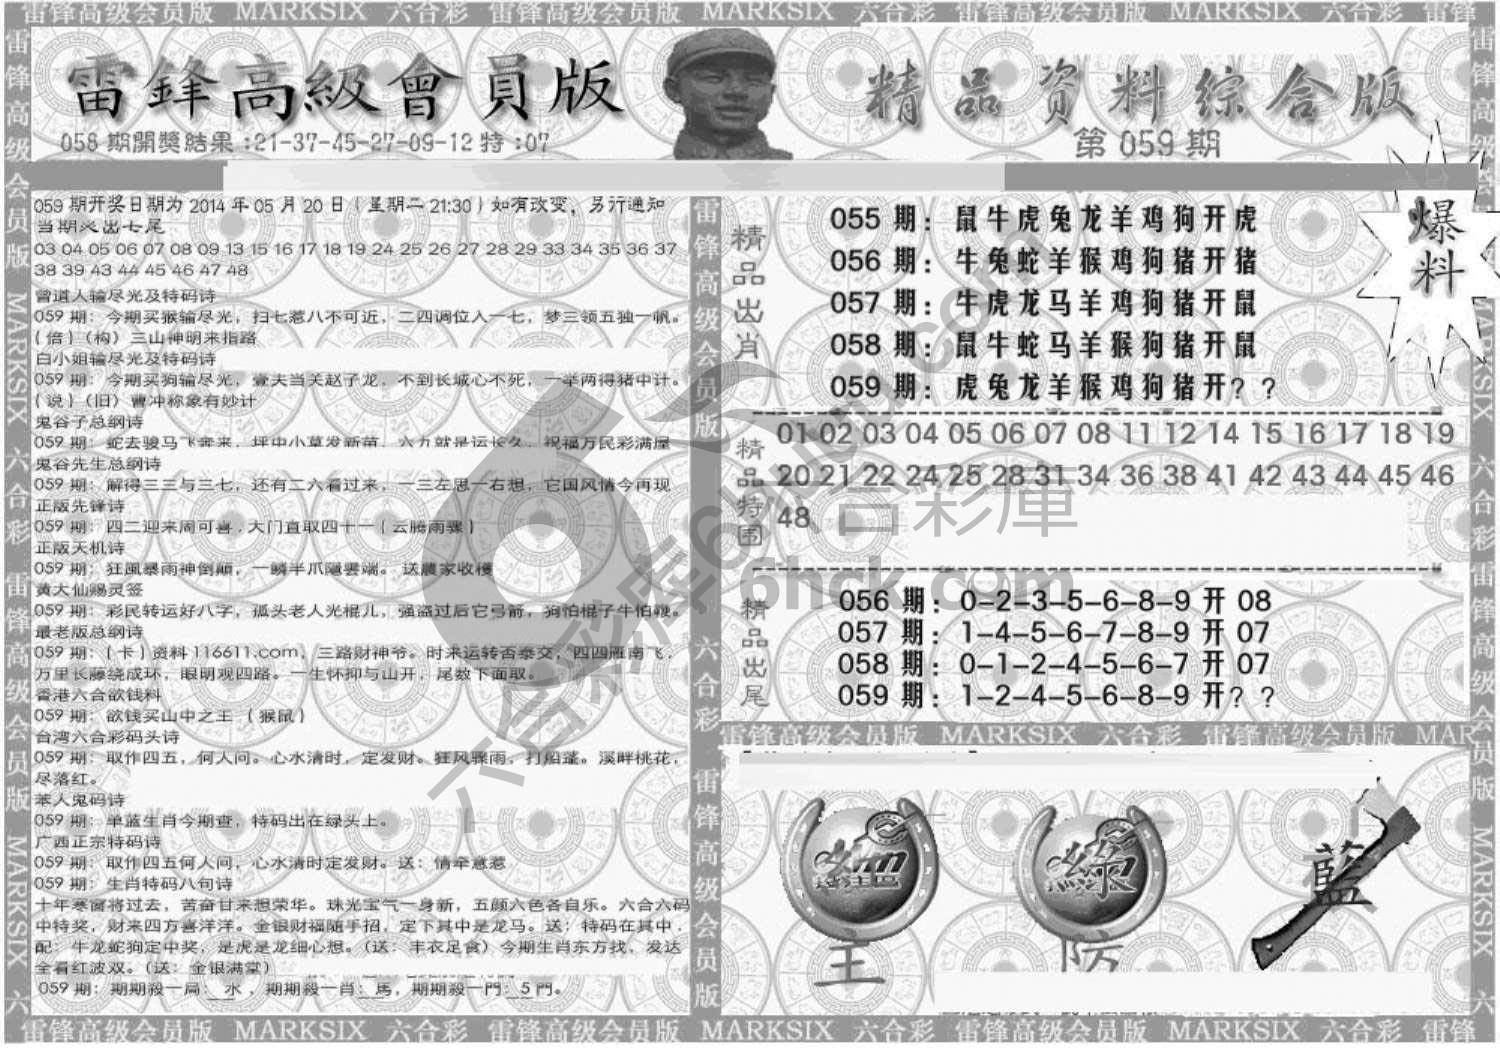 雷锋高级会员版 MARKSIX 六合彩 雷锋高级会员版 MARKSIX 六合彩 雷锋高级会员版 MARKSIX 六合彩 雷锋
雷鋒高級會員版
058期開獎結果:21-37-45-27-09-12特:07
精品资料综合版
第059期
爆料
059期开奖日期为2014年05月20日(星期二21:30)如有改变，另行通知
当期必出七尾
03 04 05 06 07 08 09 13 15 16 17 18 19 24 25 26 27 28 29 33 34 35 36 37
38 39 43 44 45 46 47 48
曾道人输尽光及特码诗
059期：今期买猴输尽光，扫七惹八不可近，二四调位入一七，梦三领五独一帆。
(倍)(构)三山神明来指路
白小姐输尽光及特码诗
059期：今期买狗输尽光，壹夫当关赵子龙，不到长城心不死，一举两得猪中计。
(说)(旧)曹冲称象有妙计
鬼谷子总纲诗
059期：蛇去骏马飞奔来，坪中小草发新苗，六九就是运长久，祝福万民彩满屋
鬼谷先生总纲诗
059期：解得三三与三七，还有二六看过来，一三左思一右想，它国风情今再现
正版先锋诗
059期：四二迎来周可喜，大门直取四十一(云腾雨骤)
正版天机诗
059期：狂風暴雨神倒顛，一鳞半爪隱雲端。 送農家收樓
黄大仙赐灵签
059期：彩民转运好八字，孤头老人光棍儿，强盗过后它弓箭，狗怕棍子牛怕鞭。
最老版总纲诗
059期：(卡)资料116611.com，三路财神爷。时来运转否泰交，四四雁南飞，
万里长藤绕成环，眼明观四路。一生怀抑与山开，尾数下面取。
香港六合欲钱料
059期：欲钱买山中之王 (猴鼠)
台湾六合彩码头诗
059期：取作四五，何人问。心水清时，定发财。狂风骤雨，打船蓬。溪畔桃花，
尽落红。
苯人鬼码诗
059期：单蓝生肖今期查，特码出在绿头上。
广西正宗特码诗
059期：取作四五何人问，心水清时定发财。送：情牵意惹
059期：生肖特码八句诗
十年寒窗将过去，苦奋甘来想荣华。珠光宝气一身新，五颜六色各自乐。六合六码
中特奖，财来四方喜洋洋。金银财福随手招，定下其中是龙马。送：特码在其中，
配：牛龙蛇狗定中奖，是虎是龙细心想。(送：丰衣足食)今期生肖东方找，发达
全看红波双。(送：金银满堂)
059期：期期殺一局：水，期期殺一肖：馬，期期殺一門：5門。
精品出肖
055期：鼠牛虎兔龙羊鸡狗开虎
056期：牛兔蛇羊猴鸡狗猪开猪
057期：牛虎龙马羊鸡狗猪开鼠
058期：鼠牛蛇马羊猴狗猪开鼠
059期：虎兔龙羊猴鸡狗猪开？？
精品特围
01 02 03 04 05 06 07 08 11 12 14 15 16 17 18 19
20 21 22 24 25 28 31 34 36 38 41 42 43 44 45 46
48
精品出尾
056期：0-2-3-5-6-8-9开08
057期：1-4-5-6-7-8-9开07
058期：0-1-2-4-5-6-7开07
059期：1-2-4-5-6-8-9开？？
雷锋高级会员版 MARKSIX 六合彩 雷锋高级会员版 MAR
綠
藍
主
防
六合彩庫
6hck.com
雷锋高级会员版 MARKSIX 六合彩 雷锋高级会员版 MARKSIX 六合彩 雷锋高级会员版 MARKSIX 六合彩 雷锋